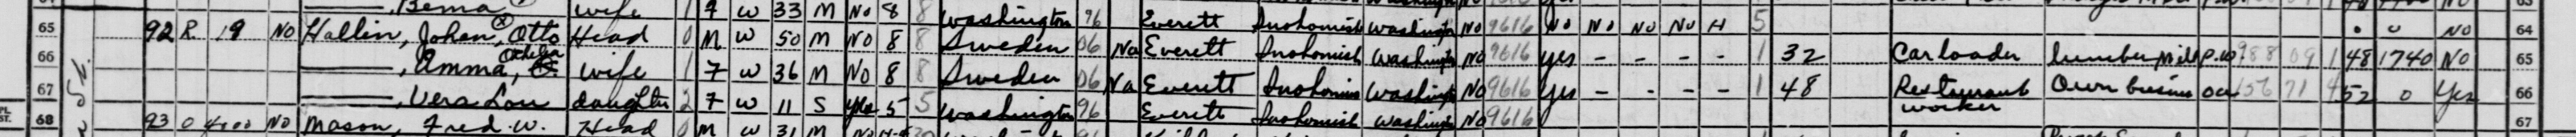 Bema wife 1 F W 33 M No 8 8 Washington 96 Everett Snohomish Washington No 9616 No No No No H 5 64
65 92 R 19 No Hallin, Johan, Otto Head 0 M W 50 M No 8 8 Sweden 06 Na Everett Snohomish Washington No 9616 yes - - - - 1 32 Car loader lumber Mill P.W 988 09 1 48 1740 No 65
66 ———, Amma, Othelia wife 1 F W 36 M No 8 8 Sweden 06 Na Everett Snohomish Washington No 9616 yes - - - - 1 48 Restaurant worker Own business OA 156 71 4 52 0 Yes 66
67 ———, Vera Lou daughter 2 F W 11 S yes 5 5 Washington 96 Everett Snohomish Washington No 9616 67
68 93 O 4000 No Mason, Fred. W. Head 0 M W 31 M No